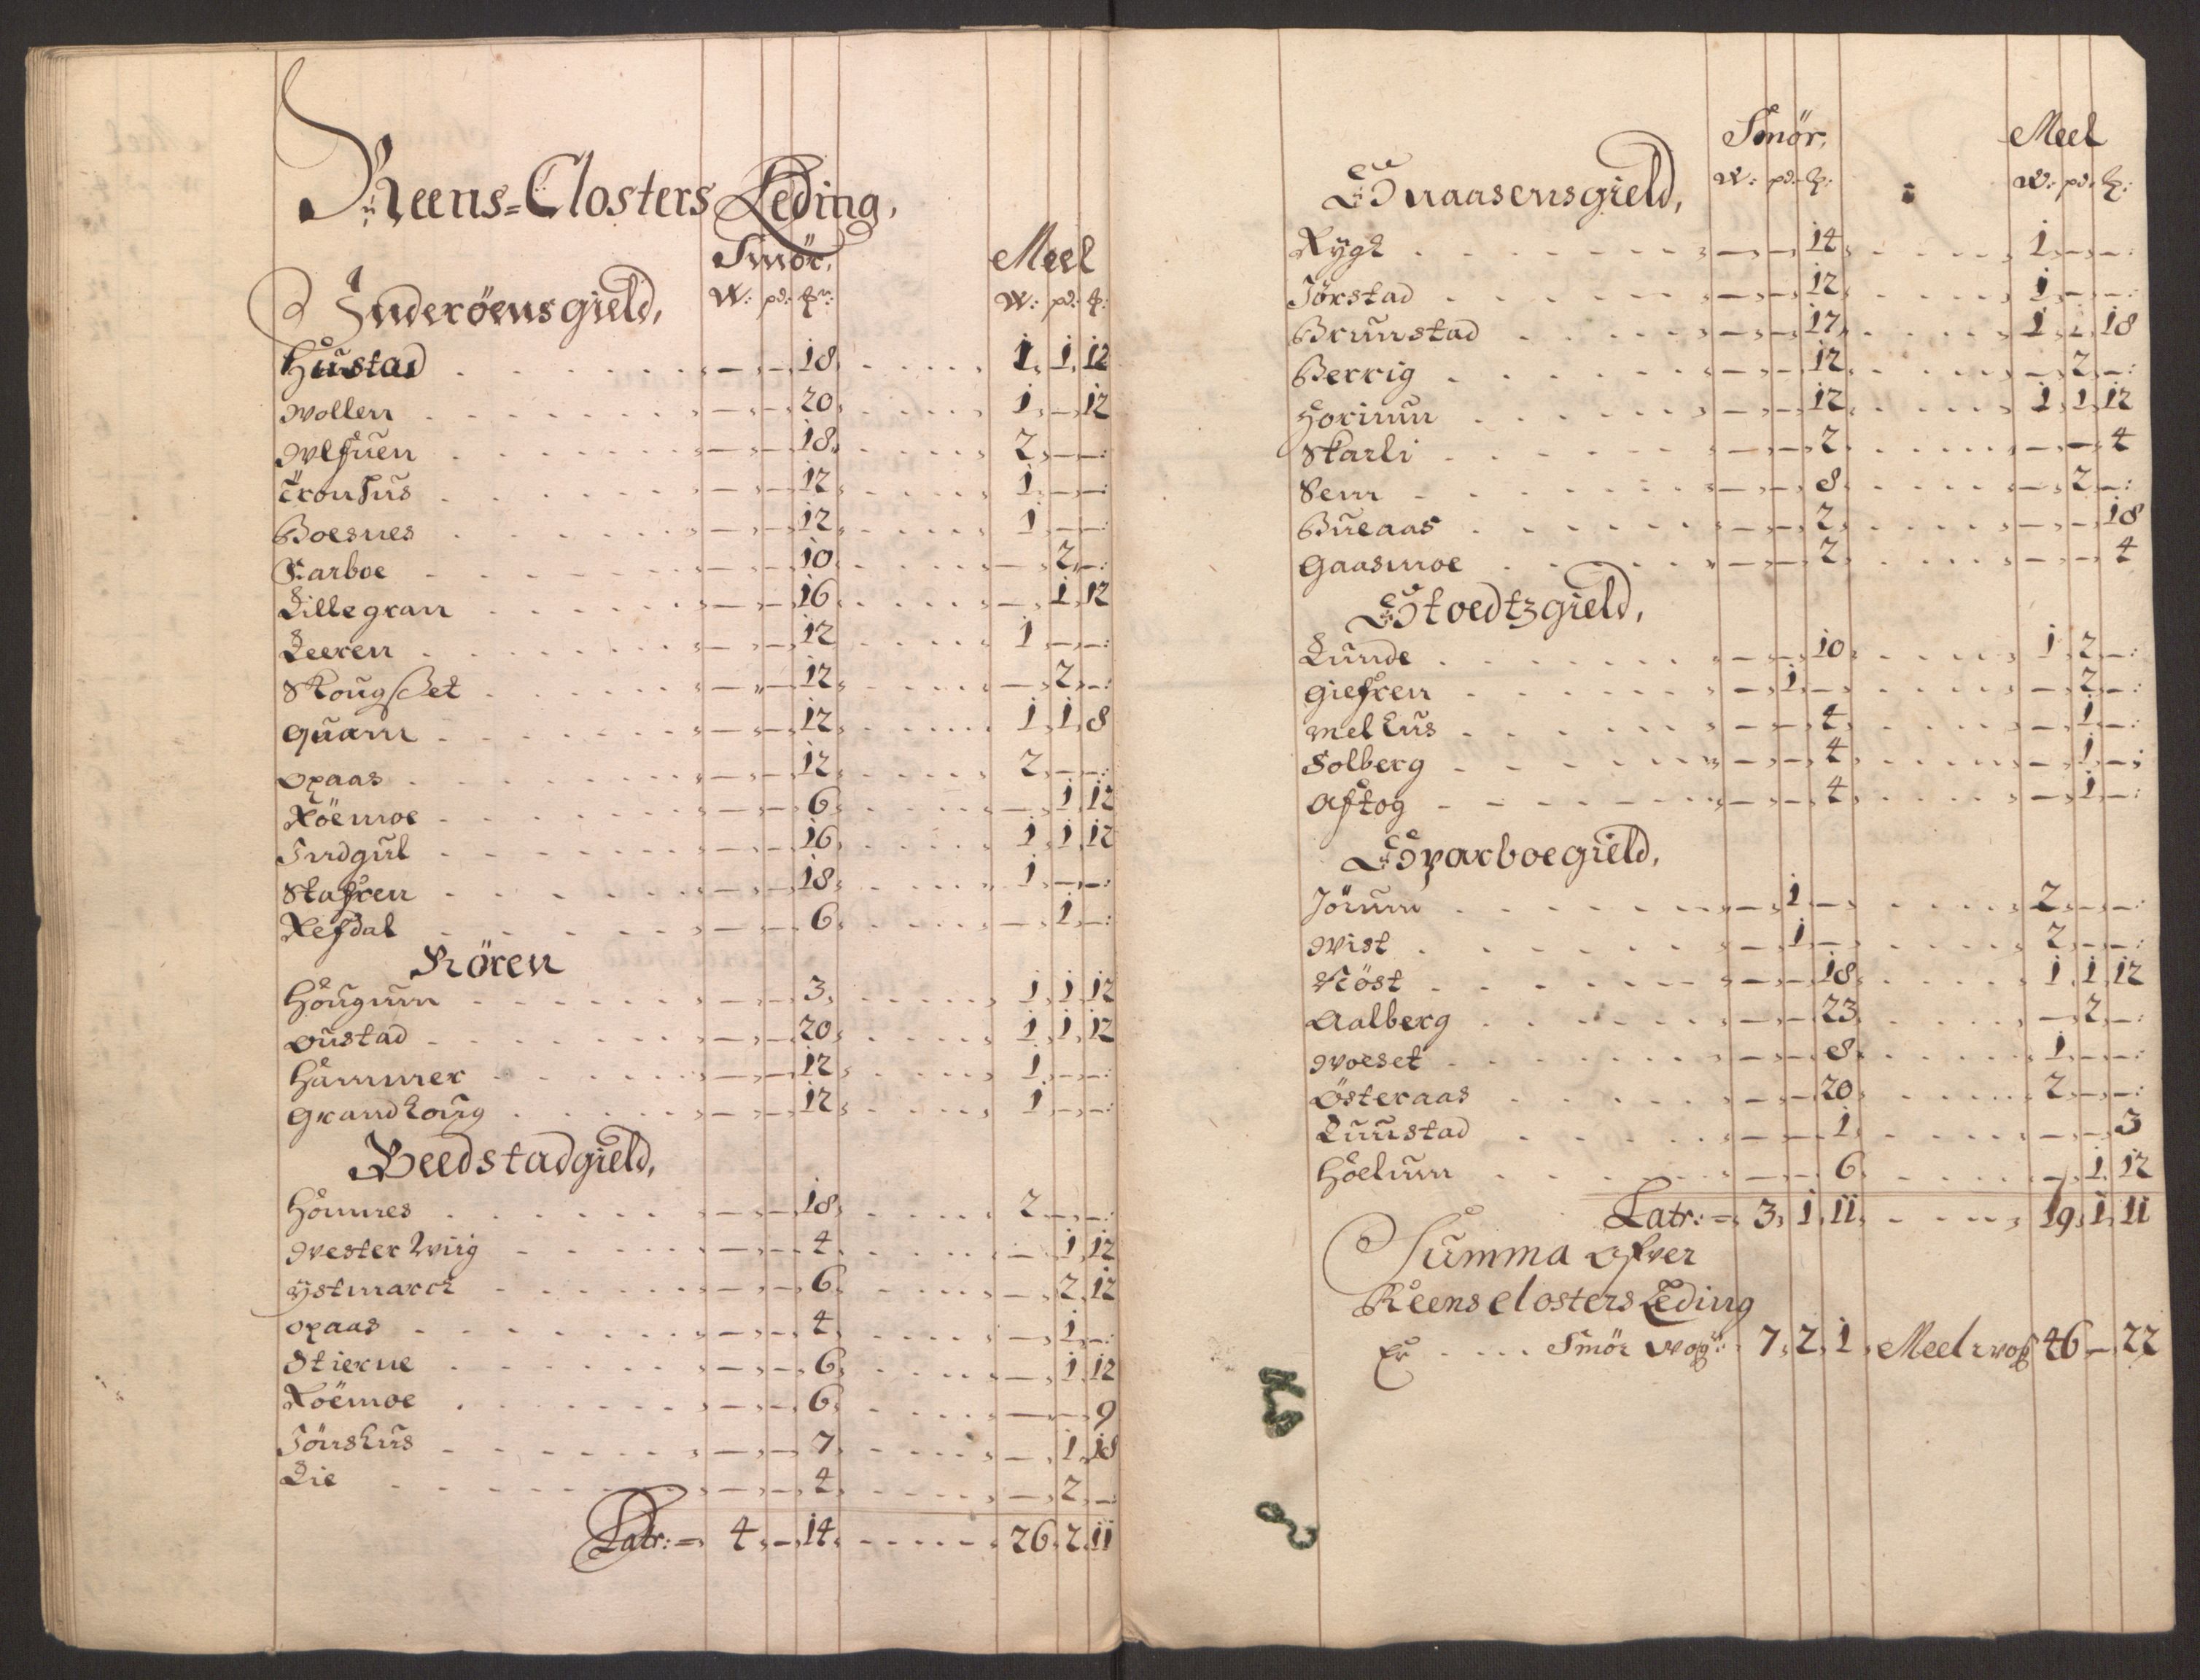 Reens=Closters Leding,
Smör, Meel
Inderöens gield, W: pd: ℔: W: pd: ℔:
Hustad - - 18 1 1 12
Wollen - - 20 1 - 12
Wlfuen - - 18 2 - -
Tronhus - - 12 1 - -
Boesnes - - 12 1 - -
Karboe - - 10 - 2 -
Lillegran - - 16 - 1 12
Leeren - - 12 1 - -
Skougset - - 12 - 2 -
Quam - - 12 1 1 8
Opaas - - 12 2 - -
Röemoe - - 6 - 1 12
Indgul - - 16 1 1 12
Stafren - - 18 1 - -
Refdal - - 6 - 1 -
Rören
Hougum - - 3 1 1 12
Oustad - - 20 1 1 12
Hammer - - 12 1 - -
Grandhoug - - 12 1 - -
Beedstadgield,
Hömnes - - 18 2 - -
Westerhviig - - 4 - 1 12
Ystmarck - - 6 - 2 12
Opaas - - 4 - 1 -
Stierne - - 6 - 1 12
Röemoe - - 6 - - 9
Jönshus - - 7 - 1 18
Lie - - 4 - 2 -
Latr:= 4 - 14 26 2 11
Smör, Meel
Snaasensgield, W: pd: ℔: W: pd: ℔:
Rygh - - 14 1 - -
Jörstad - - 12 1 - -
Brunstad - - 17 1 1 18
Berrig - - 12 - 2 -
Horinn - - 12 1 1 12
Skarli - - 2 - - 4
Sem - - 8 - 2 -
Bueaas - - 2 - - 18
Gaasmoe - - 2 - - 4
Stoedtzgield,
Lunde - - 10 1 2 -
Giefren - 1 - - 2 -
Melhus - - 4 - 1 -
Solberg - - 4 - 1 -
Aftog - - 4 - 1 -
Sparboegield,
Jörum - 1 - 2 - -
Wist - 1 - 2 - -
Röst - - 18 1 1 12
Aalberg - - 23 - 2 -
Woeset - - 8 1 - -
Österaas - - 20 2 - -
Lunstad - - 1 - - 3
Hoelum - - 6 - 1 12
Latr:= 3 1 11 19 1 11
Summa Ofver
Reens closters Leding
Er Smör wog: 7 2 1 Meel wog 46 - 22